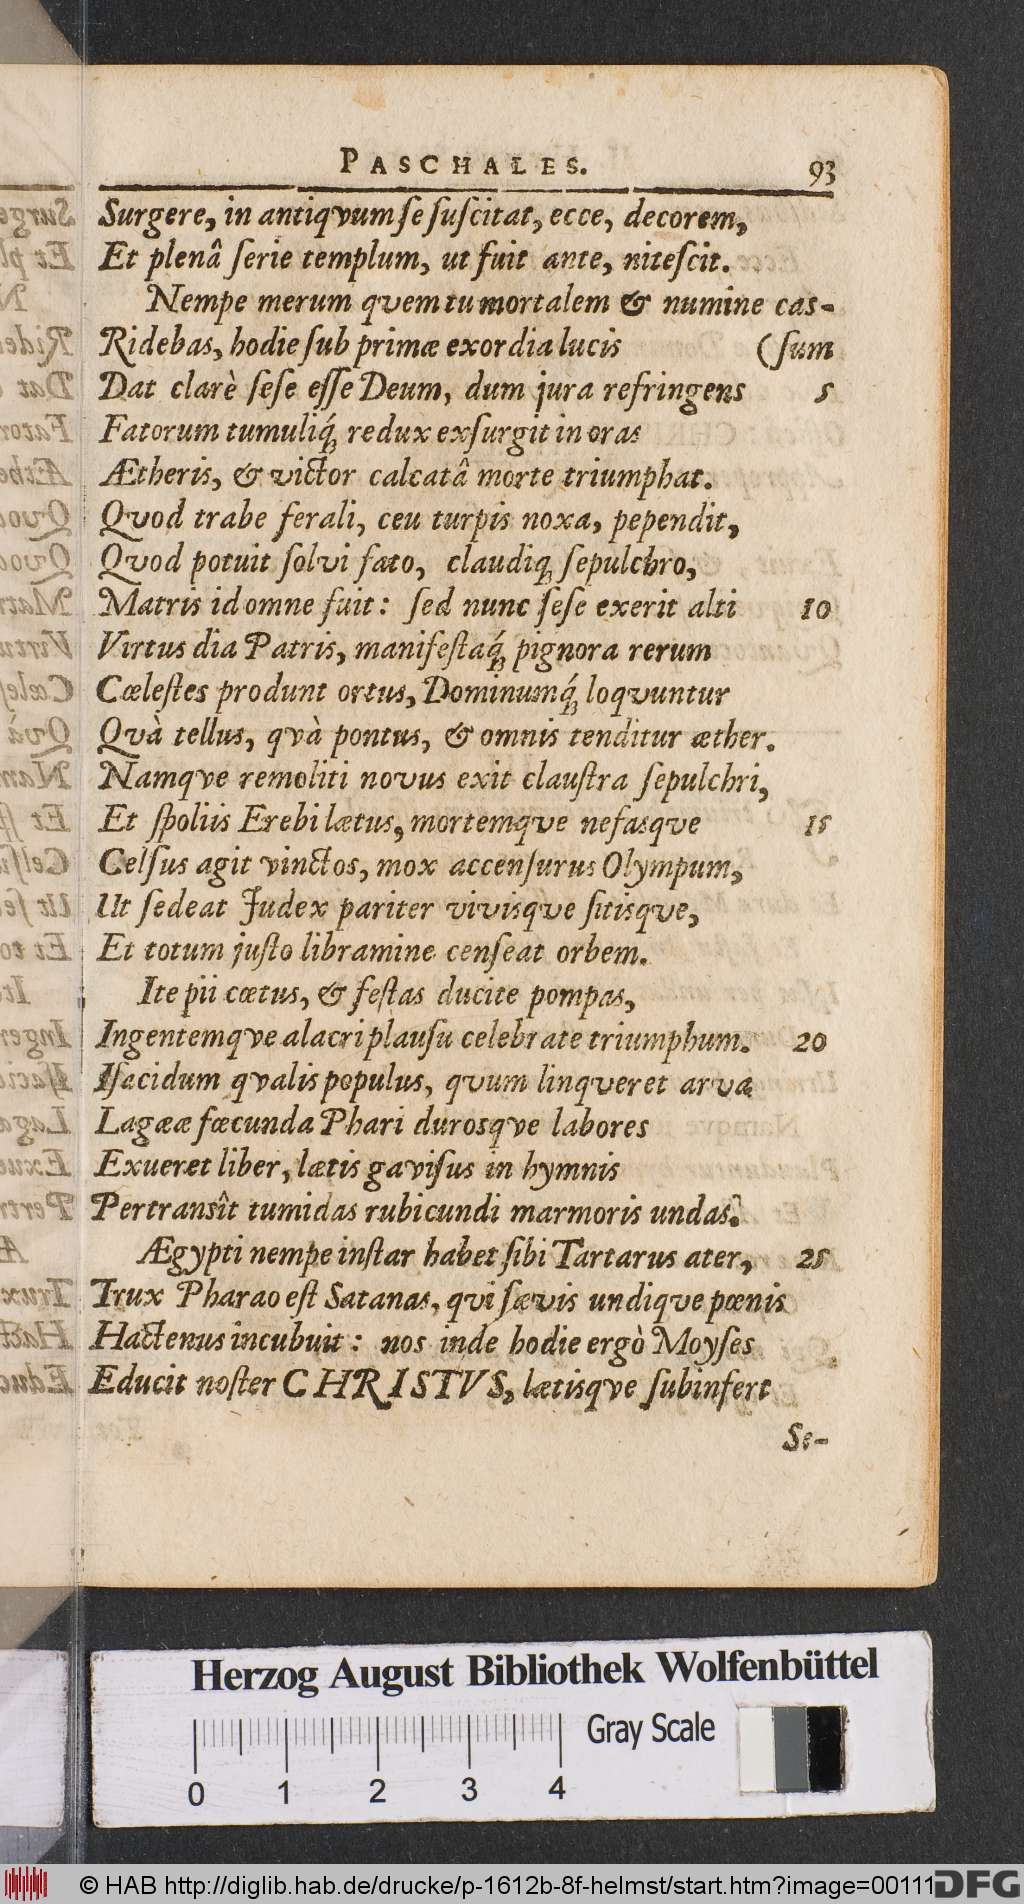 PASCHALES. 93
Surgere, in antiqvum se suscitat, ecce, decorem,
Et plenâ serie templum, ut fuit ante, nitescit.
Nempe merum qvem tu mortalem & numine cas-
Ridebas, hodie sub primæ exordia lucis (sum
Dat clarè sese esse Deum, dum jura refringens 5
Fatorum tumuliq́; redux exsurgit in oras
Ætheris, & victor calcatâ morte triumphat.
Qvod trabe ferali, ceu turpis noxa, pependit,
Qvod potuit solvi fato, claudiq; sepulchro,
Matris id omne fuit: sed nunc sese exerit alti 10
Virtus dia Patris, manifestaq́; pignora rerum
Cœlestes produnt ortus, Dominumq́; loqvuntur
Qvà tellus, qvà pontus, & omnis tenditur æther.
Namqve remoliti novus exit claustra sepulchri,
Et spoliis Erebi lætus, mortemqve nefasqve 15
Celsus agit vinctos, mox accensurus Olympum,
Ut sedeat Judex pariter vivisqve sitisqve,
Et totum justo libramine censeat orbem.
Ite pii cœtus, & festas ducite pompas,
Ingentemqve alacri plausu celebrate triumphum. 20
Isacidum qvalis populus, qvum linqveret arva
Lagææ fœcunda Phari durosqve labores
Exueret liber, lætis gavisus in hymnis
Pertransît tumidas rubicundi marmoris undas.
Ægypti nempe instar habet sibi Tartarus ater, 25
Trux Pharao est Satanas, qvi sævis undiqve pœnis
Hactenus incubuit: nos inde hodie ergò Moyses
Educit noster CHRISTVS, lætisqve subinfert
Se-
Herzog August Bibliothek Wolfenbüttel
Gray Scale
0 1 2 3 4
© HAB http://diglib.hab.de/drucke/p-1612b-8f-helmst/start.htm?image=00111
DFG